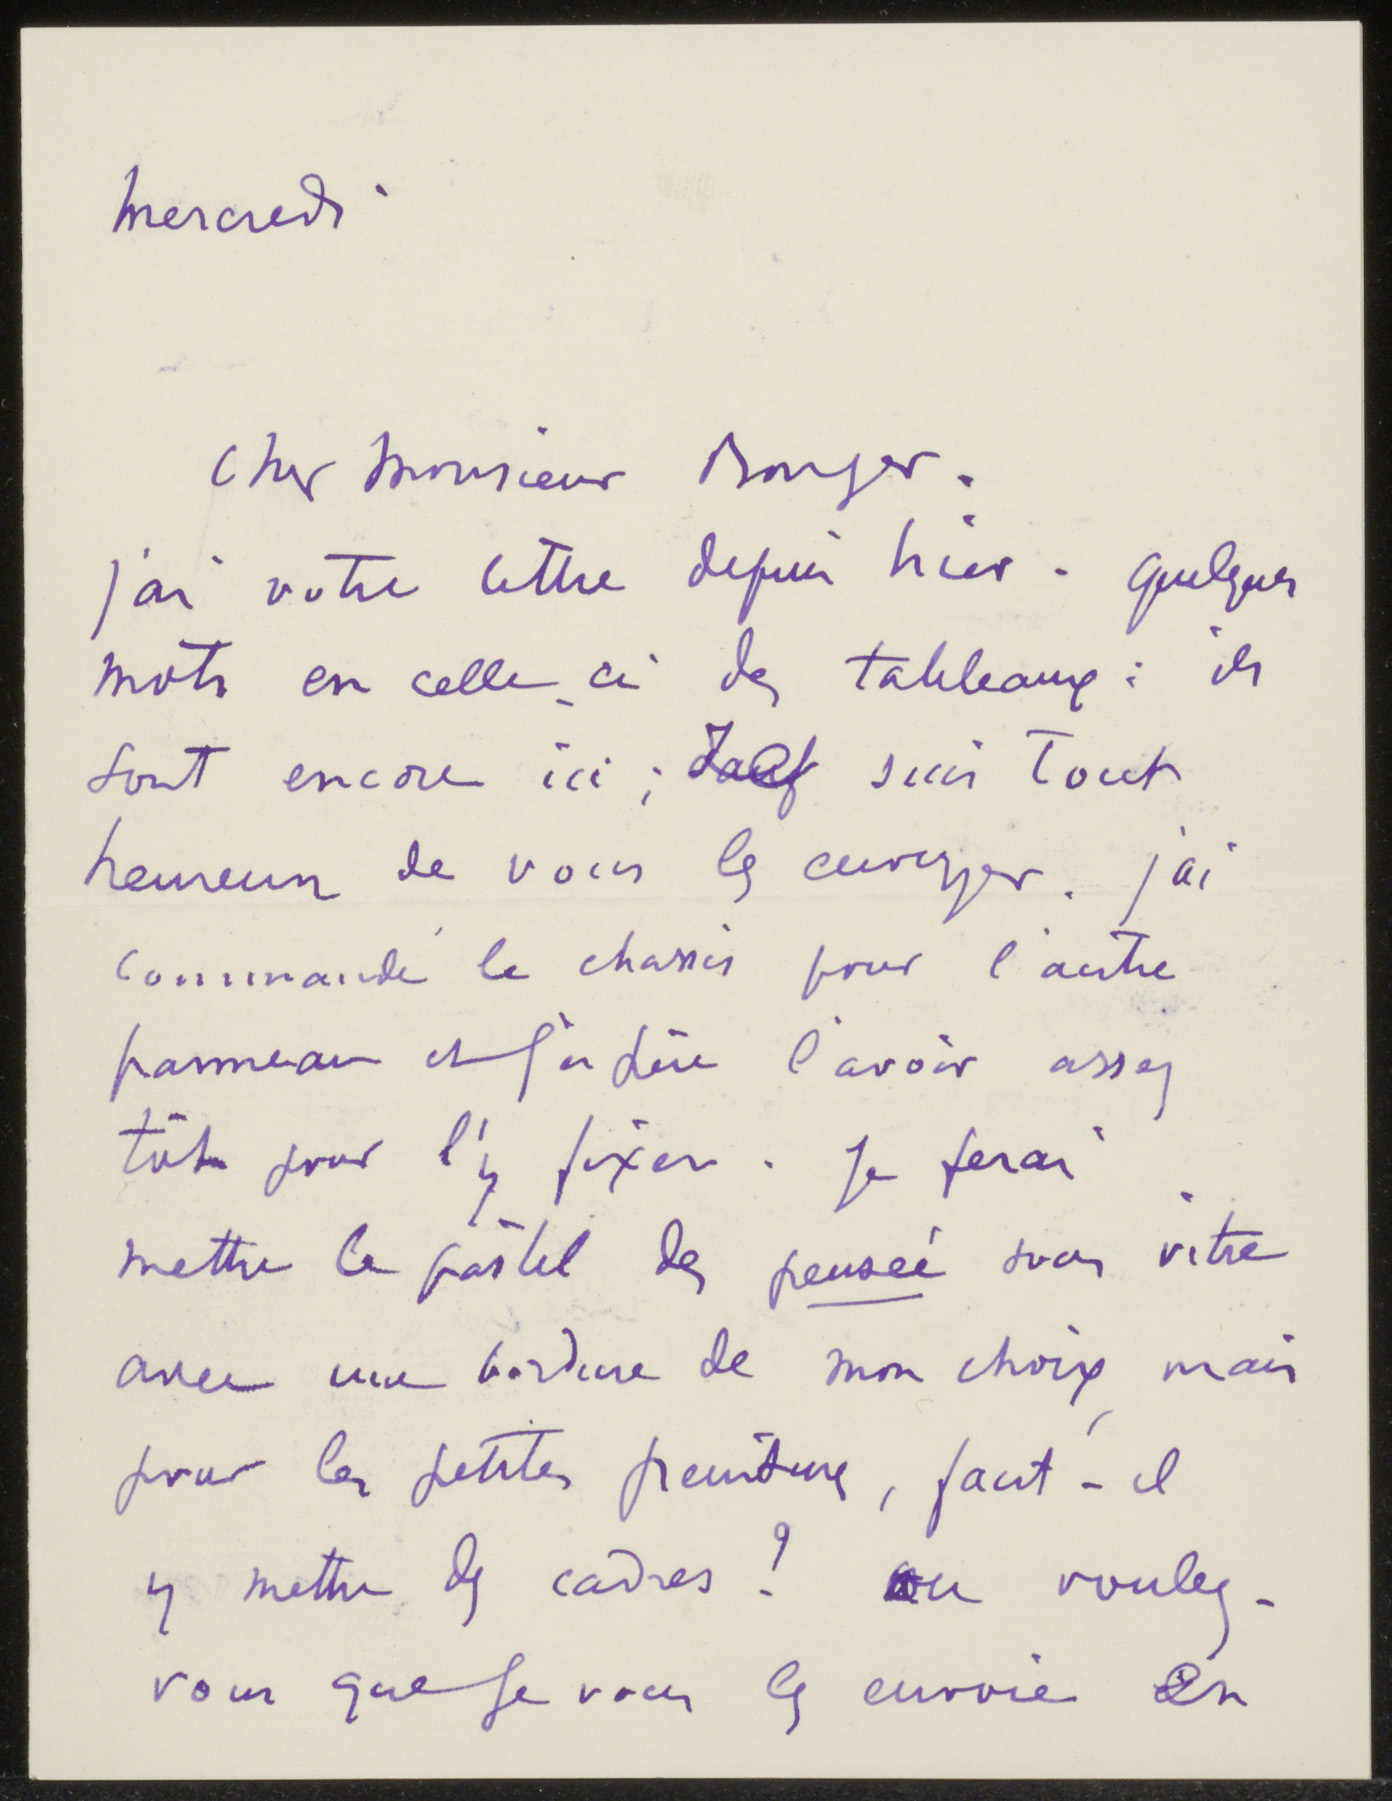 Mercredi
Cher Monsieur Bonger.
j'ai votre lettre depuis hier. quelques
mots en celle-ci des tableaux : ils
sont encore ici ; suis tout
heureux de vous les envoyer. j'ai
commandé le chassis pour l'autre
panneau et j'espère l'avoir assez
tôt pour l'y fixer. Je ferai
mettre le pastel des pensée sous vitre
avec une bordure de mon choix, mais
pour les petites peintures, faut-il
y mettre des cadres ? ou voulez-
vous que je vous les envoie en